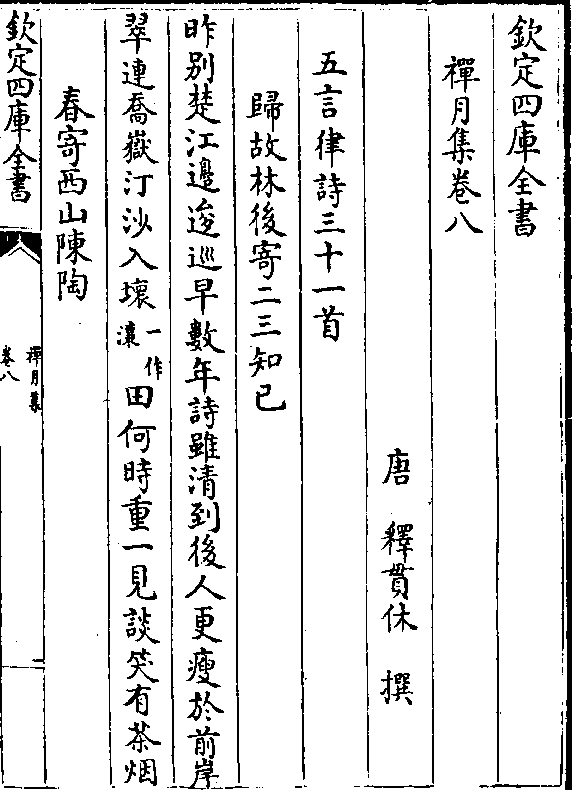 欽定四庫全書
禪月集卷八
唐 釋貫休 撰
五言律詩三十一首
歸故林後寄二三知己
昨別楚江邊逡巡早數年詩雖清到後人更瘦於前岸
翠連喬嶽汀沙入壞一作瀼田何時重一見談笑有茶烟
春寄西山陳陶
欽定四庫全書
禪月集
卷八